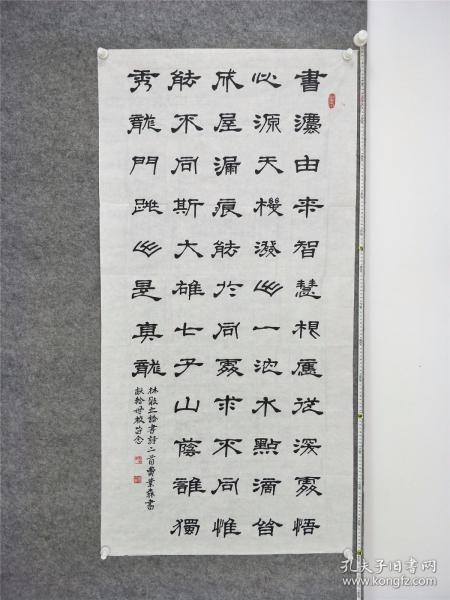 書灋由来智慧根應從深處悟
心源天機潑出一池水點滴皆
成屋漏痕能於同處求不同惟
能不同斯大雄七子山蔭誰獨
秀龍門跳出是真龍
林散之論書詩二首業森書
獻給母校留念
孔夫子旧书网
www.kongfz.com